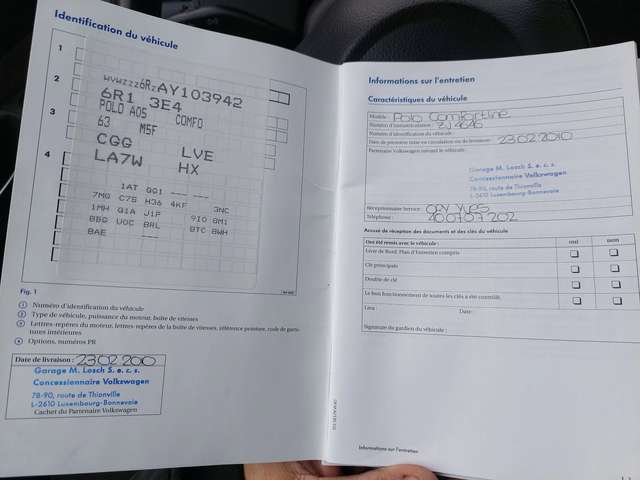 Identification du véhicule
1
2
3
4
WVWZZZ6RZAY103942
6R1 3E4
POLO A05 COMFO
63 M5F
CGG LVE
LA7W HX
1AT GC1 --- ---
7MG C7S H36 4KF 3NC
1MH G1A J1P 9IO 8M1
8BG U0C 8RL 8TC 8WH
8AE ---
Fig. 1
1 Numéro d'identification du véhicule
2 Type de véhicule, puissance du moteur, boîte de vitesses
3 Lettres-repères du moteur, lettres-repères de la boîte de vitesses, référence peinture, code de garnitures intérieures
4 Options, numéros PR
Date de livraison : 23.02.2010
Garage M. Losch S. e. c. s.
Concessionnaire Volkswagen
78-90, route de Thionville
L-2610 Luxembourg-Bonnevoie
Cachet du Partenaire Volkswagen
Informations sur l'entretien
Caractéristiques du véhicule
Modèle : Polo Comfortline
Numéro d'immatriculation : ZJ 4646
Numéro d'identification du véhicule :
Date de première mise en circulation ou de livraison : 23.02.2010
Partenaire Volkswagen suivant le véhicule :
Garage M. Losch S. e. c. s.
Concessionnaire Volkswagen
78-90, route de Thionville
L-2610 Luxembourg-Bonnevoie
Réceptionnaire Service :
Téléphone : 400707 202
Accusé de réception des documents et des clés du véhicule
Ont été remis avec le véhicule : oui non
Livre de Bord, Plan d'Entretien compris
Clé principale
Double de clé
Le bon fonctionnement de toutes les clés a été contrôlé.
Lieu : Date :
Signature du gardien du véhicule :
Informations sur l'entretien